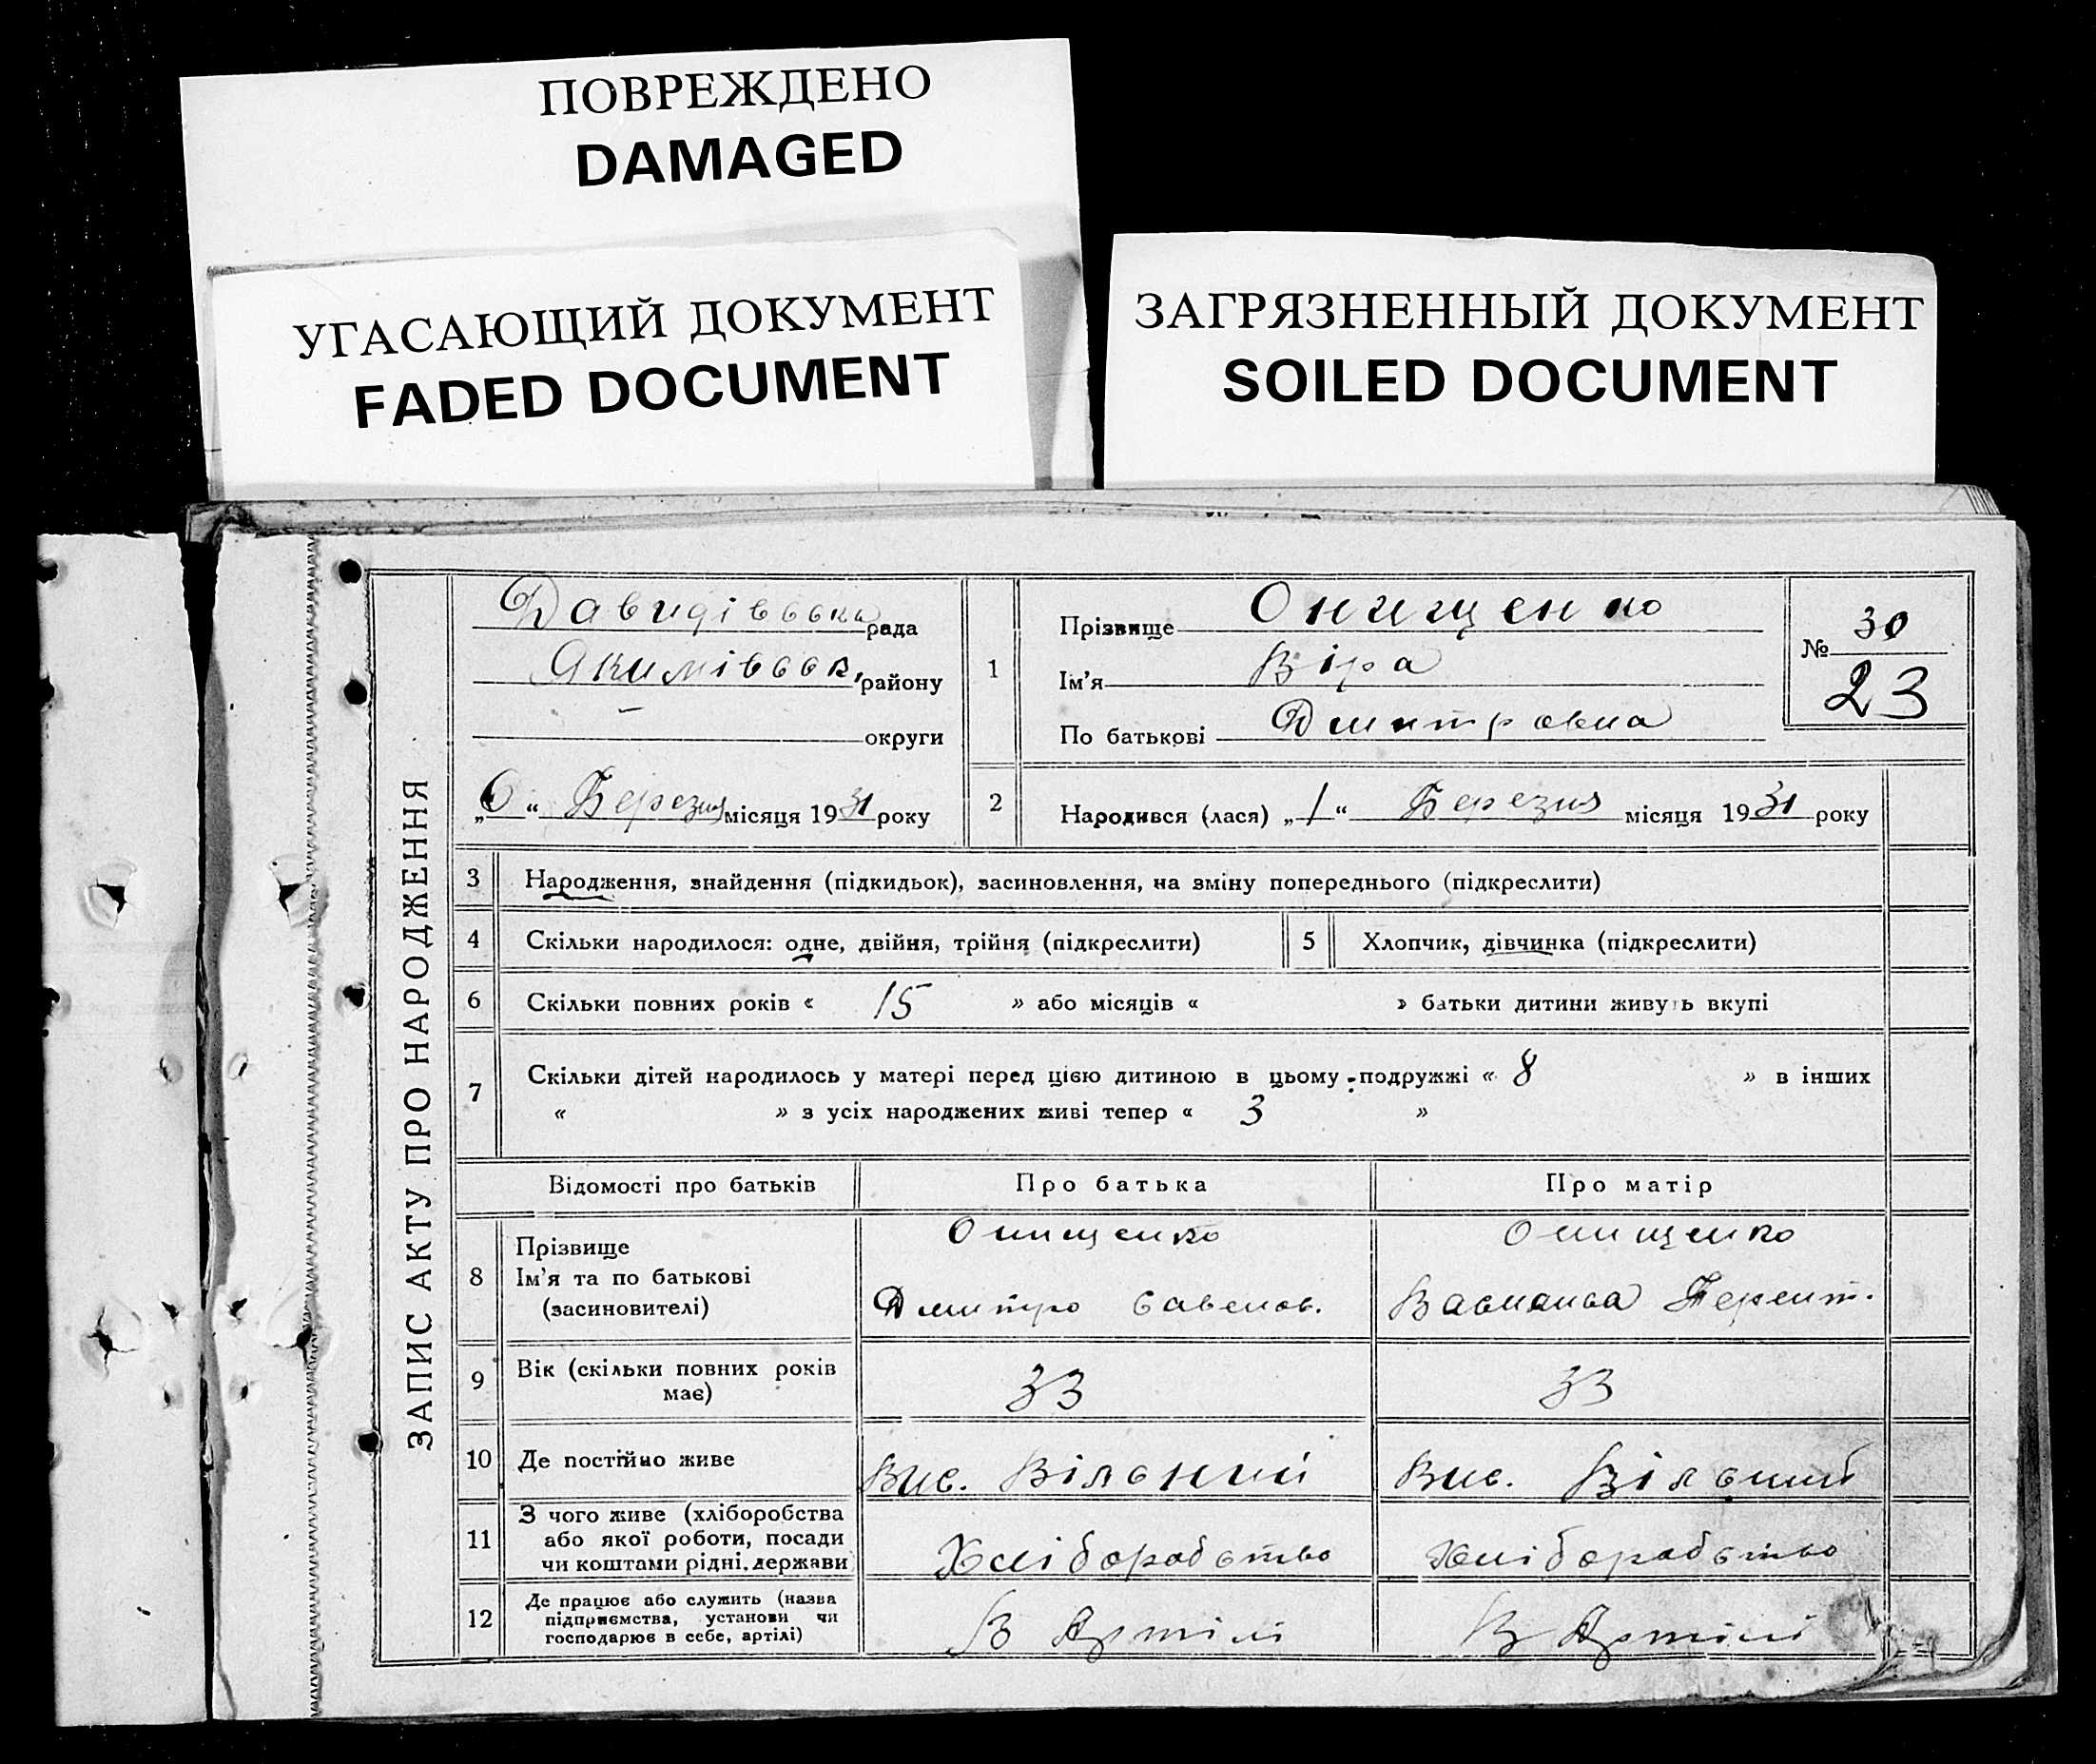 ПОВРЕЖДЕНО
DAMAGED
УГАСАЮЩИЙ ДОКУМЕНТ
FADED DOCUMENT
ЗАГРЯЗНЕННЫЙ ДОКУМЕНТ
SOILED DOCUMENT
ЗАПИС АКТУ ПРО НАРОДЖЕННЯ
Давидівська рада
Якимівськ. району
— округи
„6“ Березня місяця 1931 року
1
Прізвище Онищенко
Ім'я Віра
По батькові Дмитровна
№ 30
23
2 Народився (лася) „1“ Березня місяця 1931 року
3 Народження, знайдення (підкидьок), засиновлення, на зміну попереднього (підкреслити)
4 Скільки народилося: одне, двійня, трійня (підкреслити) 5 Хлопчик, дівчинка (підкреслити)
6 Скільки повних років « 15 » або місяців « » батьки дитини живуть вкупі
7 Скільки дітей народилось у матері перед цією дитиною в цьому подружжі « 8 » в інших
« » з усіх народжених живі тепер « 3 »
Відомості про батьків Про батька Про матір
8 Прізвище Онищенко Онищенко
Ім'я та по батькові
(засиновителі) Дмитро Савенов. Терент.
9 Вік (скільки повних років
має) 33 33
10 Де постійно живе Вис. Вільний Вис. Вільний
11 З чого живе (хліборобства
або якої роботи, посади
чи коштами рідні, держави Хліборобство Хліборобство
12 Де працює або служить (назва
підприємства, установи чи
господарює в себе, артілі) В Артілі В Артілі